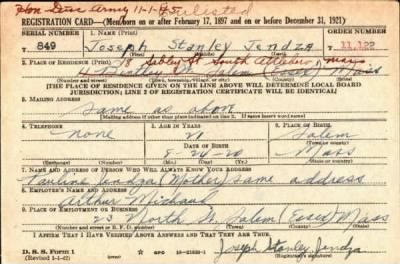 Hon Disc Army 11-1-45 Enlisted
REGISTRATION CARD—(Men born on or after February 17, 1897 and on or before December 31, 1921)
SERIAL NUMBER
1. NAME (Print)
ORDER NUMBER
T 849
Joseph Stanley Jendza
11,122
2. PLACE OF RESIDENCE (Print) 78 Sibley St South Attleboro Mass
Salem (Essex) Mass
(Number and street) (Town, township, village, or city) (County) (State)
[THE PLACE OF RESIDENCE GIVEN ON THE LINE ABOVE WILL DETERMINE LOCAL BOARD
JURISDICTION; LINE 2 OF REGISTRATION CERTIFICATE WILL BE IDENTICAL]
3. MAILING ADDRESS
Same as above
[Mailing address if other than place indicated on line 2. If same insert word same]
4. TELEPHONE
5. AGE IN YEARS
6. PLACE OF BIRTH
none
21
Salem
DATE OF BIRTH
(Town or county)
8-24-20
Mass
(Exchange) (Number)
(Mo.) (Day) (Yr.)
(State or country)
7. NAME AND ADDRESS OF PERSON WHO WILL ALWAYS KNOW YOUR ADDRESS
Pauline Jendza (Mother) same address
8. EMPLOYER'S NAME AND ADDRESS
Arthur Michaud
9. PLACE OF EMPLOYMENT OR BUSINESS
23 North St. Salem (Essex) Mass
(Number and street or R. F. D. number) (Town) (County) (State)
I AFFIRM THAT I HAVE VERIFIED ABOVE ANSWERS AND THAT THEY ARE TRUE.
D. S. S. Form 1
(Revised 1-1-42)
GPO 16-21630-1
Joseph Stanley Jendza